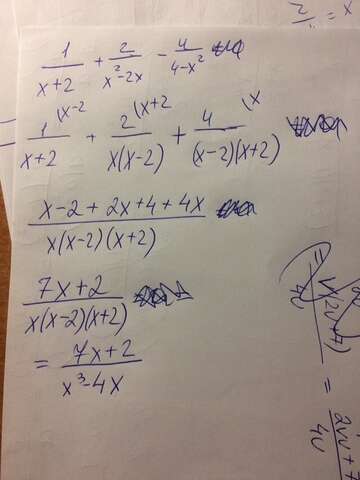 1/(x+2) + 2/(x²-2x) - 4/(4-x²)
1\x-2/(x+2) + 2\x+2/(x(x-2)) + 4\x/((x-2)(x+2))
(x-2+2x+4+4x)/(x(x-2)(x+2))
(7x+2)/(x(x-2)(x+2))
= (7x+2)/(x³-4x)